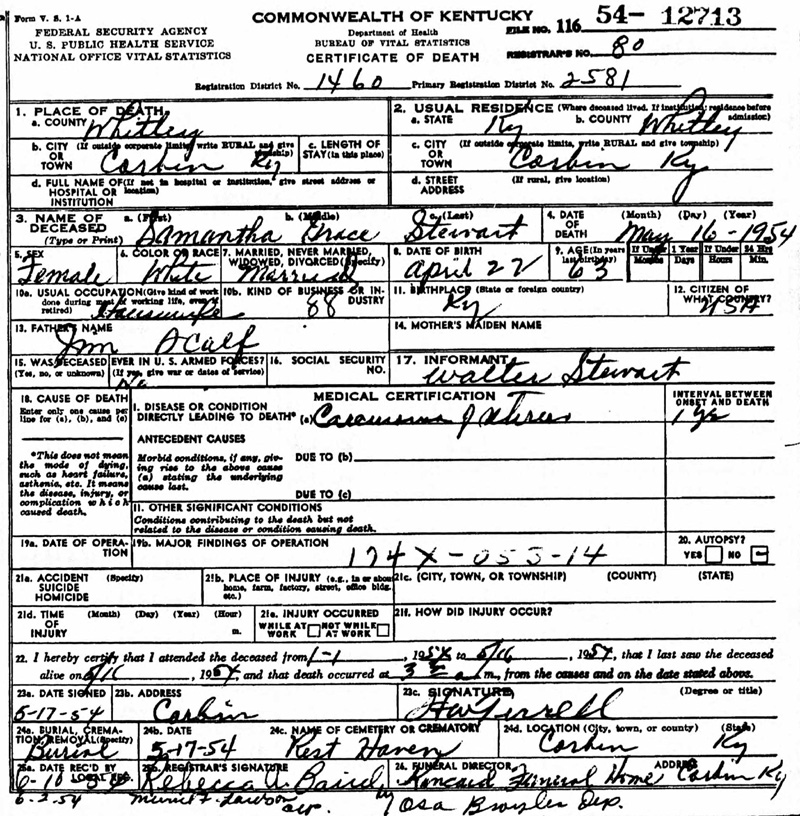 Form V. S. 1-A
COMMONWEALTH OF KENTUCKY
FILE NO. 116 54- 12713
FEDERAL SECURITY AGENCY
U. S. PUBLIC HEALTH SERVICE
NATIONAL OFFICE VITAL STATISTICS
Department of Health
BUREAU OF VITAL STATISTICS
CERTIFICATE OF DEATH
REGISTRAR'S NO. 80
Registration District No. 1460 Primary Registration District No. 2581
1. PLACE OF DEATH
a. COUNTY Whitley
2. USUAL RESIDENCE (Where deceased lived. If institution: residence before admission)
a. STATE Ky b. COUNTY Whitley
b. CITY (If outside corporate limits, write RURAL and give township) OR TOWN Corbin Ky
c. LENGTH OF STAY (in this place)
c. CITY (If outside corporate limits, write RURAL and give township) OR TOWN Corbin Ky
d. FULL NAME OF (If not in hospital or institution, give street address or location) HOSPITAL OR INSTITUTION
d. STREET ADDRESS (If rural, give location)
3. NAME OF DECEASED (Type or Print) a. (First) b. (Middle) c. (Last)
Samantha Grace Stewart
4. DATE OF DEATH (Month) (Day) (Year)
May 16-1954
5. SEX Female
6. COLOR OR RACE White
7. MARRIED, NEVER MARRIED, WIDOWED, DIVORCED (Specify) Married
8. DATE OF BIRTH April 22
9. AGE (In years last birthday) 63
If Under 1 Year Months Days
If Under 24 Hrs Hours Min.
10a. USUAL OCCUPATION (Give kind of work done during most of working life, even if retired) Housewife
10b. KIND OF BUSINESS OR INDUSTRY 88
11. BIRTHPLACE (State or foreign country) Ky
12. CITIZEN OF WHAT COUNTRY? USA
13. FATHER'S NAME Jim Acalf
14. MOTHER'S MAIDEN NAME
15. WAS DECEASED EVER IN U. S. ARMED FORCES? (Yes, no, or unknown) (If yes, give war or dates of service) No
16. SOCIAL SECURITY NO.
17. INFORMANT Walter Stewart
18. CAUSE OF DEATH
Enter only one cause per line for (a), (b), and (c)
MEDICAL CERTIFICATION
INTERVAL BETWEEN ONSET AND DEATH
I. DISEASE OR CONDITION DIRECTLY LEADING TO DEATH* (a) Carcinoma of Uterus
1 yr
*This does not mean the mode of dying, such as heart failure, asthenia, etc. It means the disease, injury, or complication which caused death.
ANTECEDENT CAUSES
Morbid conditions, if any, giving rise to the above cause (a) stating the underlying cause last.
DUE TO (b)
DUE TO (c)
II. OTHER SIGNIFICANT CONDITIONS
Conditions contributing to the death but not related to the disease or condition causing death.
19a. DATE OF OPERATION
19b. MAJOR FINDINGS OF OPERATION
174X-055-14
20. AUTOPSY?
YES NO
21a. ACCIDENT SUICIDE HOMICIDE (Specify)
21b. PLACE OF INJURY (e.g., in or about home, farm, factory, street, office bldg. etc.)
21c. (CITY, TOWN, OR TOWNSHIP) (COUNTY) (STATE)
21d. TIME OF INJURY (Month) (Day) (Year) (Hour) m.
21e. INJURY OCCURRED
WHILE AT WORK NOT WHILE AT WORK
21f. HOW DID INJURY OCCUR?
22. I hereby certify that I attended the deceased from 1-1, 1954 to 5/16, 1954, that I last saw the deceased
alive on 5/16, 1954 and that death occurred at 3 a m., from the causes and on the date stated above.
23a. DATE SIGNED 5-17-54
23b. ADDRESS Corbin
23c. SIGNATURE (Degree or title)
24a. BURIAL, CREMATION, REMOVAL (Specify) Burial
24b. DATE 5-17-54
24c. NAME OF CEMETERY OR CREMATORY Rest Haven
24d. LOCATION (City, town, or county) (State) Corbin Ky
25a. DATE REC'D BY LOCAL REG. 6-10-54
25b. REGISTRAR'S SIGNATURE Rebecca A. Baird
26. FUNERAL DIRECTOR ADDRESS Kincaid Funeral Home Corbin Ky
6-2-54 Lawson Dep. by Osa Broyles Dep.